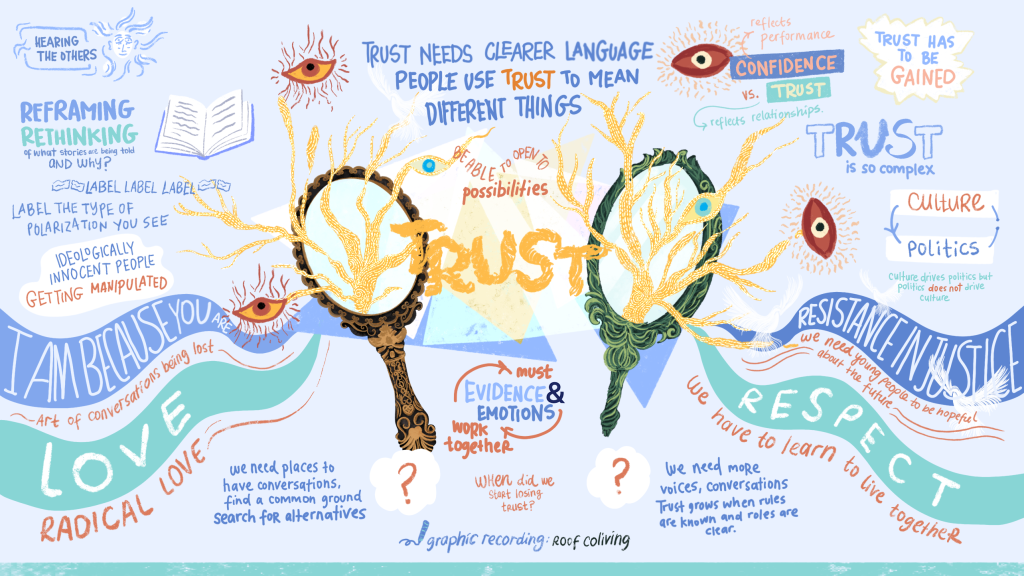 HEARING
THE OTHERS
REFRAMING
RETHINKING
of what stories are being told
AND WHY?
LABEL LABEL LABEL
LABEL THE TYPE OF
POLARIZATION YOU SEE
IDEOLOGICALLY
INNOCENT PEOPLE
GETTING MANIPULATED
I AM BECAUSE YOU ARE
Art of conversations being lost
LOVE
RADICAL LOVE
TRUST NEEDS CLEARER LANGUAGE
PEOPLE USE TRUST TO MEAN
DIFFERENT THINGS
BE ABLE TO OPEN TO
possibilities
TRUST
must
EVIDENCE &
EMOTIONS
WORK
together
we need places to
have conversations,
find a common ground
search for alternatives
?
WHEN did we
start losing
trust?
?
we need more
voices, conversations
Trust grows when rules
are known and roles are
clear.
graphic recording: Roof coliving
reflects
performance
CONFIDENCE
vs. TRUST
reflects relationships.
TRUST HAS
TO BE
GAINED
TRUST
is so complex
Culture
politics
Culture drives politics but
politics does not drive
culture
RESISTANCE IN JUSTICE
we need young people to be hopeful
about the future
RESPECT
we have to learn to live together